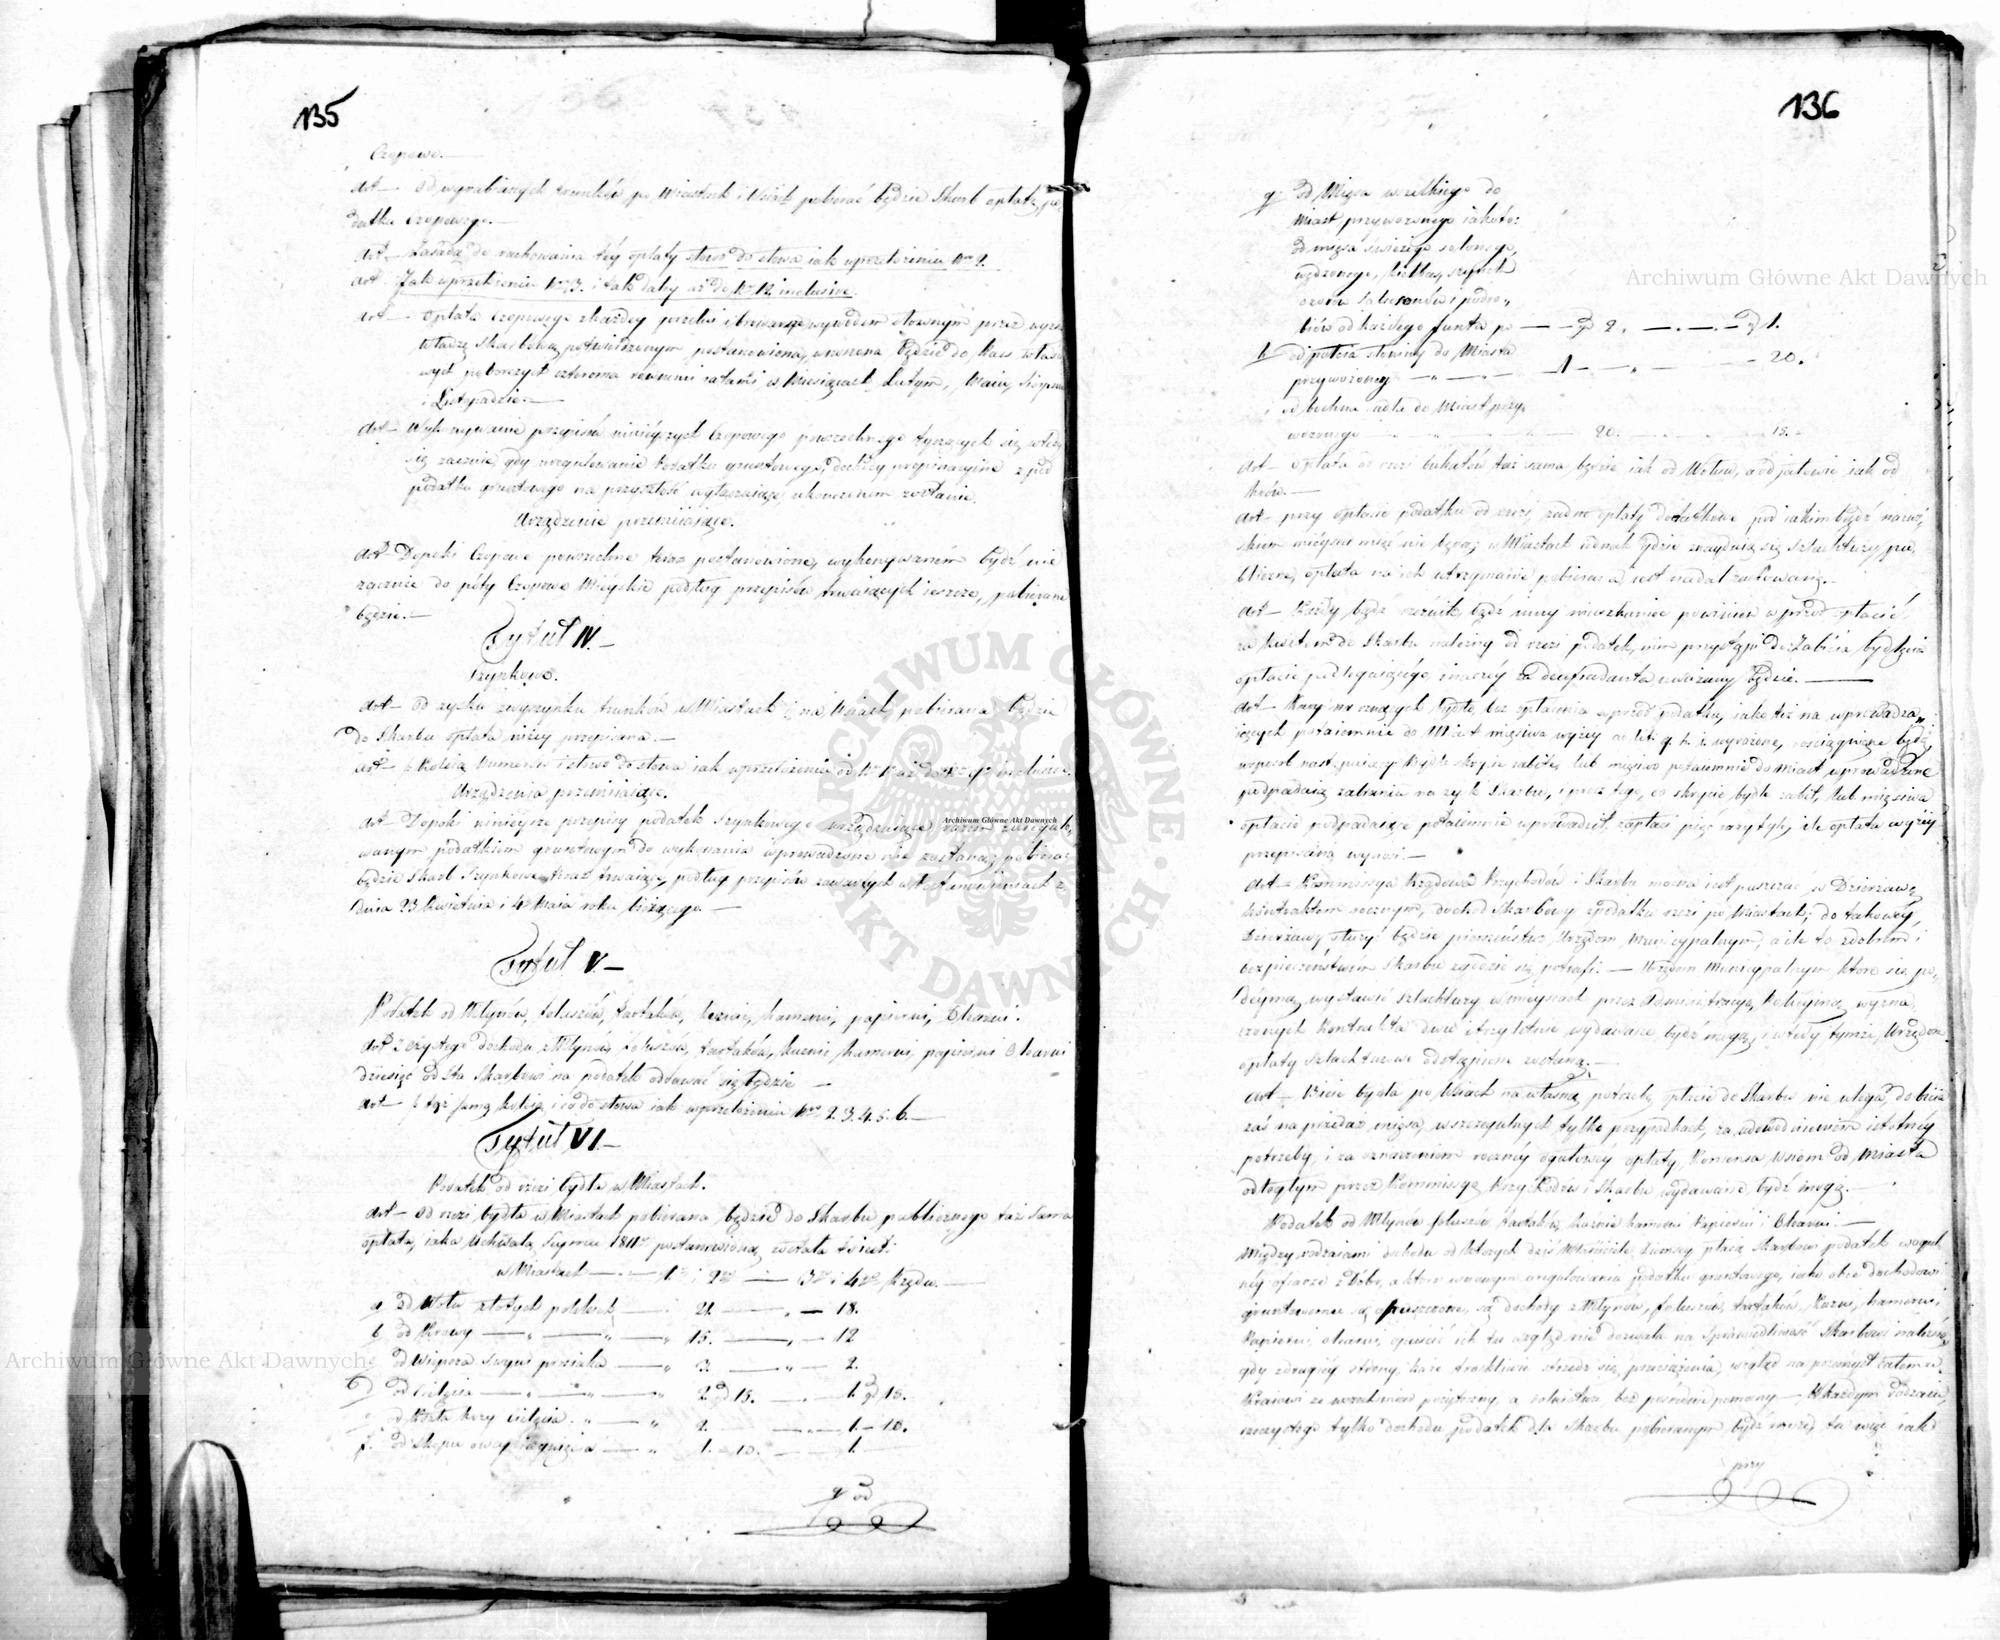 135
Czopowe.—
Art— Od wyrabianych trunków po Miastach i Wsiach pobierać będzie Skarb opłatę po-
datku Czopowego.—
Art— Zasada do rachowania téy opłaty słowo do słowa iak w przełożeniu Nro 2.
Art. Jak w przełożeniu Nro 3. i tak daley aż do Nro 12 inclusive.
Art— Opłata czopowego z każdey gorzelni i browaru wywodem słownym przez wyższą
władzę Skarbową potwierdzonym postanowiona, wnoszona będzie do kass właści-
wych poborczych czterema równemi ratami w Miesiącach Lutym, Maiu, Sierpniu
i Listopadzie.—
Art— Wykonywanie przepisów ninieyszych Czopowego powszechnego tyczących się, wtedy
się zacznie, gdy uregulowanie Podatku gruntowego, dochody propinacyine z pod
podatku gruntowego na przyszłość wyłączaiące, ukończonem zostanie.
Urządzenie przemiiaiące.
Art— Dopóki Czopowe powszechne teraz postanowione, wykonywanem bydź nie
zacznie do póty Czopowe Mieyskie podług przepisów trwaiących ieszcze, pobierane
będzie.—
Tytuł IV.—
Szynkowe.
Art— Od zysku z wyszynku trunków w Miastach i na Wsiach pobierana będzie
do Skarbu opłata niżey przepisana.—
Art— Koleią Numerów i słowo do słowa iak w przełożeniu od Nro 1 aż do Nro 9 inclusive.
Urządzenia przemiiaiące.
Art— Dopóki ninieysze przepisy podatek szynkowego urządzaiące razem z uregulo-
wanym podatkiem gruntowym do wykonania wprowadzone nie zostaną; pobierać
będzie Skarb Szynkowe teraz trwaiące, podług przepisów zawartych w Postanowieniach z
dnia 23 Kwietnia i 4 Maia roku bieżącego.—
Tytuł V.—
Podatek od Młynów, foluszów, tartaków, kuźnic, hamerni, papierni, Olearni.
Art Z czystego dochodu z Młynów, foluszów, tartaków, kuźnic, hamerni, papierni Olearni
dziesięć od sta Skarbowi na podatek oddawać się będzie —
Art— tąż samą koleią, i co do słowa iak w przełożeniu Nro 2. 3. 4. 5. 6.—
Tytuł VI.—
Podatek od rzezi bydła w Miastach.
Art— Od rzezi bydła w Miastach pobierana będzie do Skarbu publicznego taż sama
opłata, iaka Uchwałą Seymu 1811 postanowioną została to iest:
w Miastach —— 1 i 2 —— 3 i 4 Rzędu.—
a. od Wołu złotych polskich —— 21. —— 18.
b. od Krowy —— 15. —— 12
c. od Wieprza świni prosiaka —— 3. —— 2.
d od Cielęcia —— 2 gr 15. —— 1. gr 15.
e od Kozła kozy cielęcia. —— 2. —— 1.—10.
f. od Skopu owcy iagnięcia —— 1.—10. — 1.
g. od
136
g. od Mięsa wszelkiego do
Miast przywozonego iakoto:
od mięsa świeżego solonego,
wędzonego, kiełbas, szynek
ozorów salcesonów i podro-
biów od każdego funta po —— gr 2. —.—.— gr 1.
h. od połcia słoniny do Miasta
przywożoney —— 1 — „ — — 20.
i od bochna sadła do Miast przy-
wozonego —— 20. —— 15.—
Art— Opłata od rzezi bukatów taż sama będzie iak od Wołów, a od jałowic iak od
krów.—
Art— przy opłacie podatku od rzezi, żadne opłaty dodatkowe pod iakimbądź nazwi-
skiem mieysca mieć nie będą; w Miastach iednak gdzie znayduią się szlachtuzy pu-
bliczne, opłata na ich utrzymanie pobierana iest nadal zachowaną.—
Art— Każdy bądź rzeźnik bądź inny mieszkaniec powinien wprzód opłacić,
za kwitem do Skarbu należny od rzezi podatek, nim przystąpi do zabicia bydlęcia
opłacie podlegaiącego, inaczéy za defraudanta uważany będzie.——
Art— Kary na rznących bydło, bez opłacenia wprzód podatku, iako też na wprowadza-
iących potaiemnie do Miast mięsiwa wyżéy ad lit: g. h. i. wyrażone, rosciągnięte będą
w sposób następuiący: Bydło skrycie zabite, lub mięsiwo potaiemnie do Miast wprowadzone
podpadaią zabrania na zysk Skarbu, i prócz tego, co skrycie bydło zabił, lub mięsiwa
opłacie podpadaiące potaiemnie wprowadził, zapłaci pięć razy tyle, ile opłata wyżéy
przepisana wynosi.—
Art— Kommissya Rządowa Przychodów i Skarbu mocna iest puszczać w Dzierżawę
Kontraktem rocznym, dochód Skarbowy z podatku rzezi po Miastach; do takowéy
Dzierżawy służyć będzie pierwszeństwo Urzędom Municypalnym, a ile to z dobrem i
bezpieczeństwem Skarbu zgodzić się potrafi. — Urzędom Municypalnym które się po-
deymą wystawić szlachtuzy w mieyscach przez Administracyą Policyiną wyzna-
czonych Kontrakta dwu i trzyletnie wydawane bydź mogą, i wtedy tymże Urzędom
opłaty szlachtuzowe odstąpione zostaną.—
Art— Bicie bydła po Wsiach na własną potrzebę opłacie do Skarbu nie ulega, do bicia
zaś na przedaż mięsa, w szczególnych tylko przypadkach, za udowodnieniem istotnéy
potrzeby, i za oznaczeniem rocznéy ogółowey opłaty Konsensa Wsiom od Miasta
odległym przez Kommissyą Przychodów i Skarbu wydawane bydź mogą.—
Podatek od Młynów foluszów tartaków, kuźnic hamerni Papierni i Olearni.—
Między rodzaiami dochodu od których dziś Właściciele Ziemscy płacą Skarbowi podatek w ogól-
néy ofierze z dóbr, a które w nowym uregulowaniu podatku gruntowego, iako obce dochodowi
gruntowemu są opuszczone, są dochody z Młynów, foluszów, tartaków, kuźni, hamerni,
Papierni, olearni, opuścić ich tu wzgląd nie dozwala na sprawiedliwość Skarbowi należną
gdy z drugiéy strony, każe troskliwie strzedz się, przeciążenia, wzgląd na przemysł całemu
Kraiowi ze wszech miar pożyteczny, a rolnictwu bez pośrednio pomocny — W każdym zdarzeniu
z czystego tylko dochodu podatek dla Skarbu pobieranym bydź może, tu więc iak
przy
Archiwum Główne Akt Dawnych
Archiwum Główne Akt Dawnych
Archiwum Główne Akt Dawnych
ARCHIWUM GŁÓWNE AKT DAWNYCH